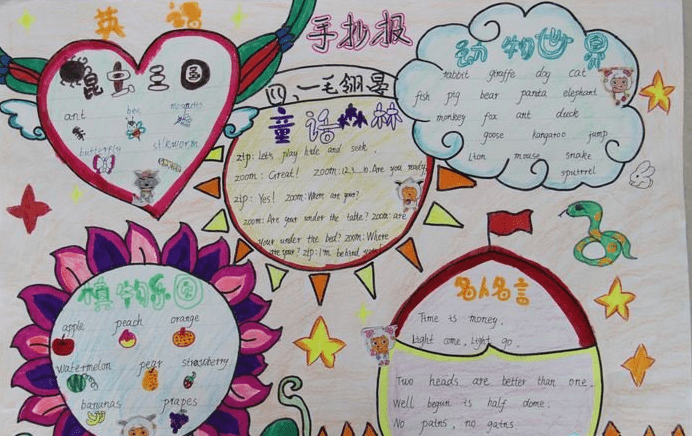 英语
手抄报
昆虫王国
ant bee mosquito
butterfly silkworm
童话森林
zip: Let's play hide and seek.
zoom: Great! zoom: 1.2.3...10. Are you ready
zip: Yes! zoom: Where are you?
zoom: Are your under the table? zoom: are
your under the bed? zoom: Where
are your? zip: I'm behind
动物世界
rabbit giraffe dog cat
fish pig bear panta elephant
monkey fox ant duck
goose kangaroo jump
Lion mouse snake
squirrel
植物乐园
apple peach orange
watermelon pear strawberry
bananas grapes
名人名言
Time is money.
Light come, Light go.
Two heads are better than one.
Well begun is half done.
No pains, no gains